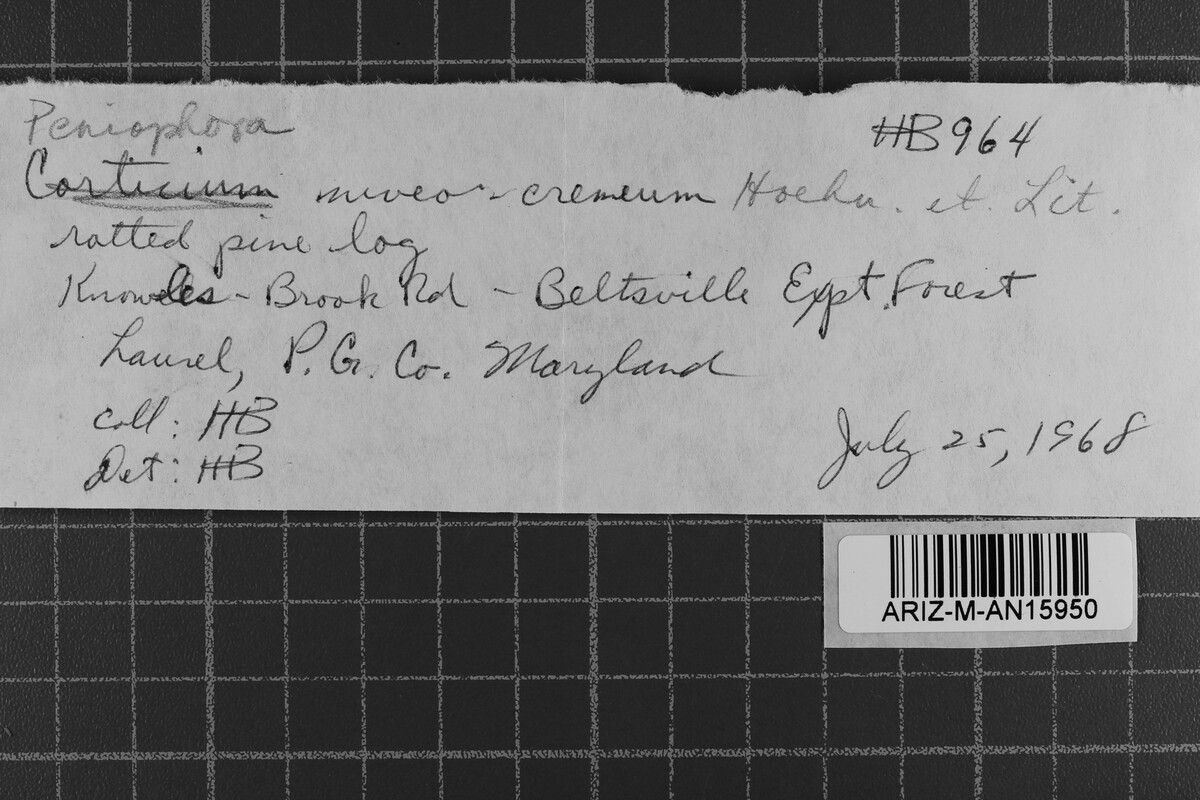 Peniophora
HB 964
Corticium niveo-cremeum Hoehn. et. Lit.
rotted pine log
Knowles-Brook Rd - Beltsville Expt. Forest
Laurel, P. G. Co. Maryland
Coll: HB
Det: HB
July 25, 1968
ARIZ-M-AN15950